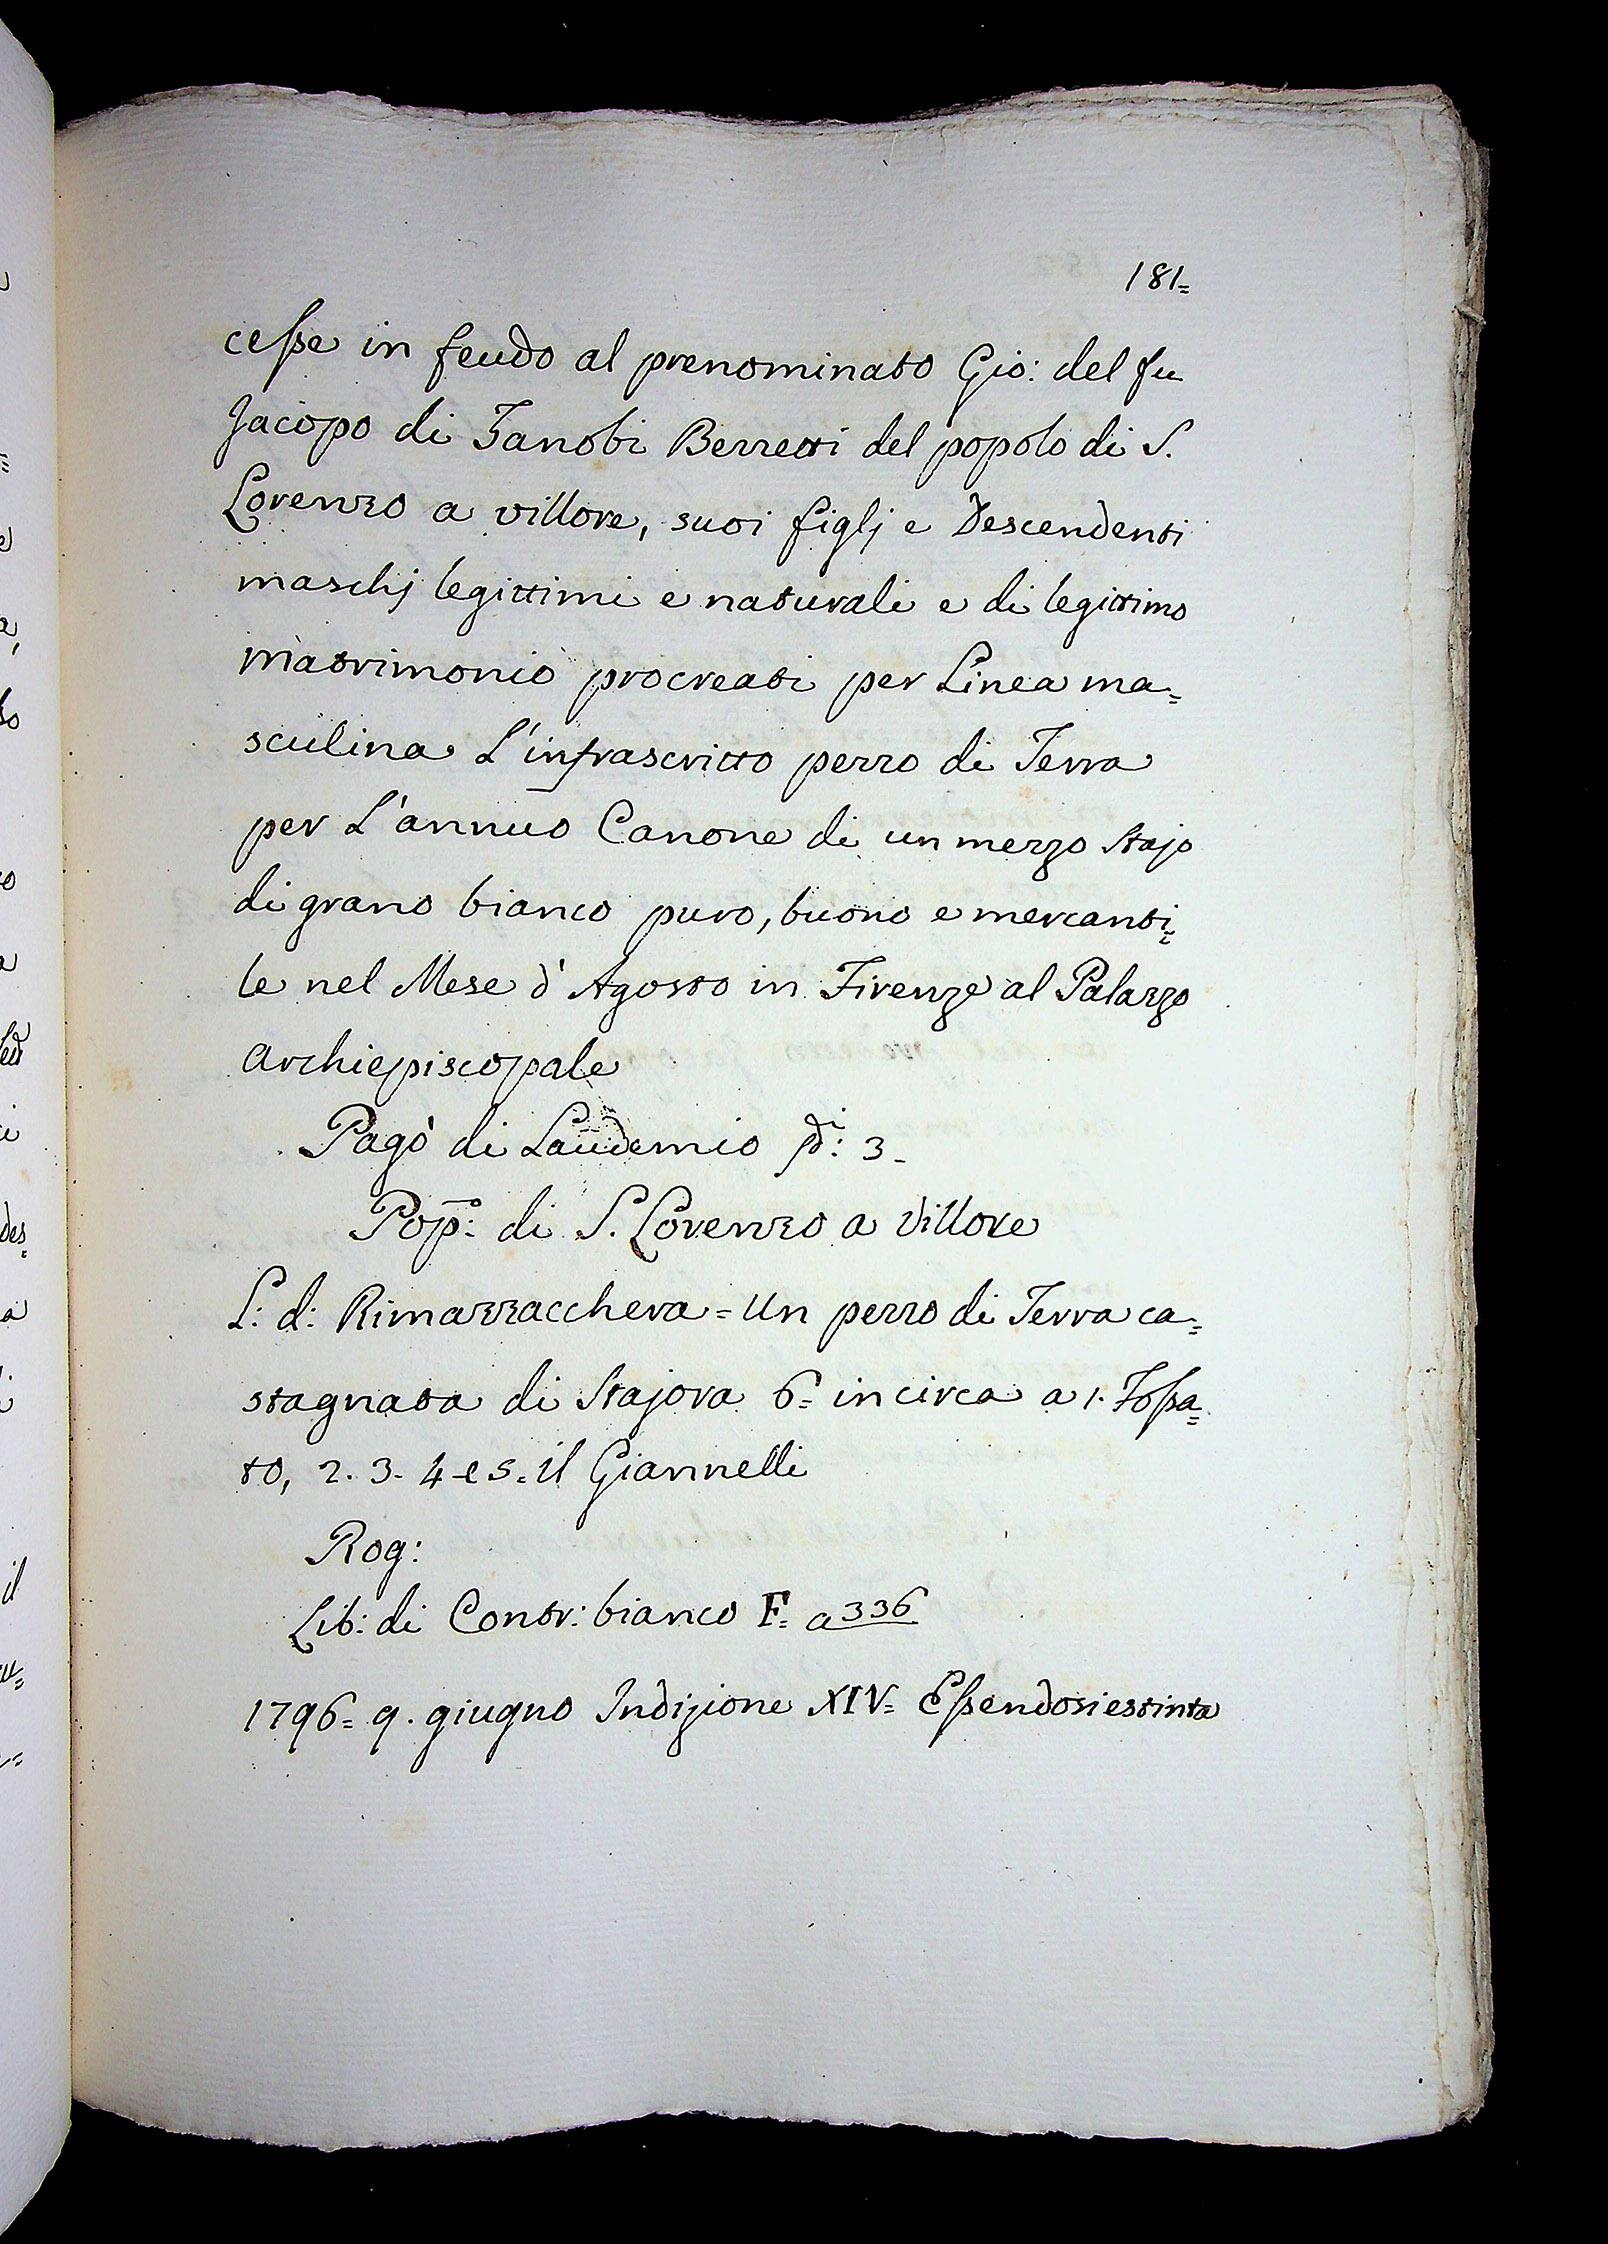 181=
cesse in feudo al prenominato Gio: del fu
Jacopo di Zanobi Berretti del popolo di S.
Lorenzo a villore, suoi figlj e Descendenti
maschj legittimi e naturali e di legittimo
matrimonio procreati per Linea ma=
sculina L'infrascritto pezzo di Terra
per L'annuo Canone di un mezzo Stajo
di grano bianco puro, buono e mercanti=
le nel Mese d'Agosto in Firenze al Palazzo
Archiepiscopale
Pagò di Laudemio 3_
Pop:° di S. Lorenzo a Villore
L: d: Rimazzacchera = Un pezzo di Terra ca=
stagnata di Stajora 6= incirca a 1. Fossa=
to, 2. 3. 4 e 5. il Giannelli
Rog:
Lib: di Contr: bianco F= a 336
1796= 9. giugno Indizione XIV= Essendosi estinta